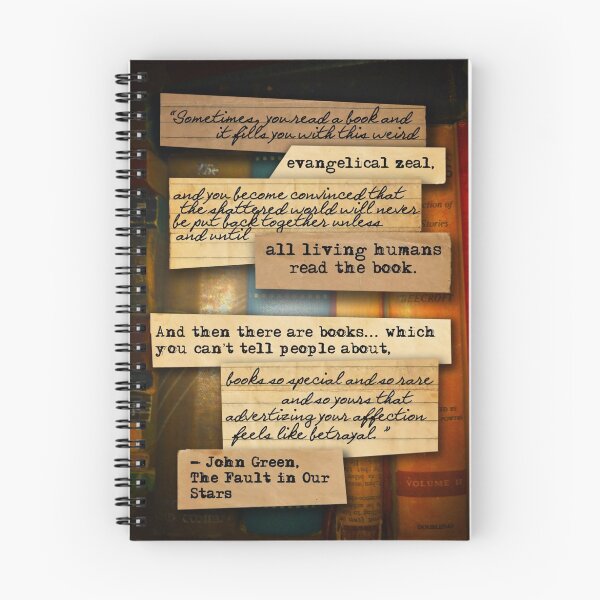 "Sometimes, you read a book and
it fills you with this weird
evangelical zeal,
and you become convinced that
the shattered world will never
be put back together unless
and until
all living humans
read the book.
And then there are books... which
you can't tell people about,
books so special and so rare
and so yours that
advertizing your affection
feels like betrayal."
– John Green,
The Fault in Our
Stars
The
Stories
BEECROFT
VOLUME II
DOUBLEDAY